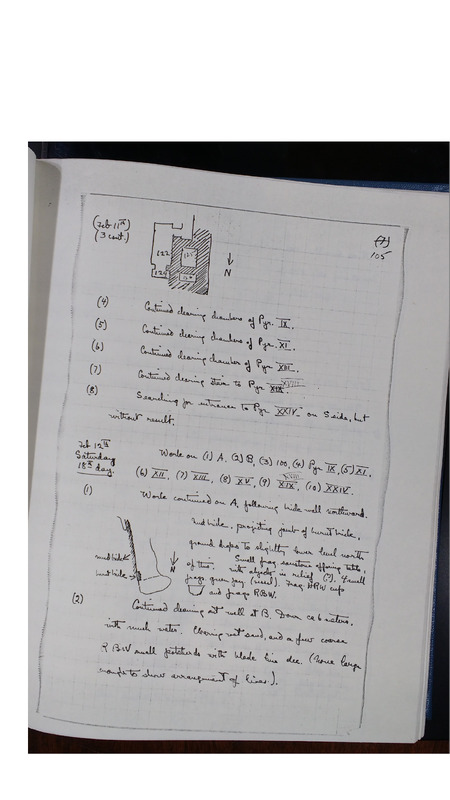 (Feb 11th)
(3 cont.)
(7)
105
122
121
124
N
(4) Continued clearing chambers of Pyr. IX.
(5) Continued clearing chambers of Pyr. XI.
(6) Continued clearing chamber of Pyr. XIII.
(7) Continued clearing stair to Pyr. XIX.
XVIII
(8) Searching for entrance to Pyr. XXIV on S side, but
without result.
Feb 12th
Saturday
18th day.
Work on (1) A, (2) B, (3) 100, (4) Pyr. IX, (5) XI,
(6) XII, (7) XIII, (8) XV, (9) XIX, (10) XXIV.
XVIII
(1) Work continued on A, following brick wall northward.
Mud brick, projecting jamb of burnt brick,
ground slopes to slightly lower level north
of this. Small frag. sandstone offering table,
with objects in relief (?). Small
frags green jar (vessel). Frag. RW cup
and frags RBW.
mud brick
burnt brick
N
(2) Continued clearing at well at B. Down ca 6 meters,
with much water. Clearing wet sand, and a few coarse
RBW small potsherds with black line dec. (None large
enough to show arrangement of lines.).